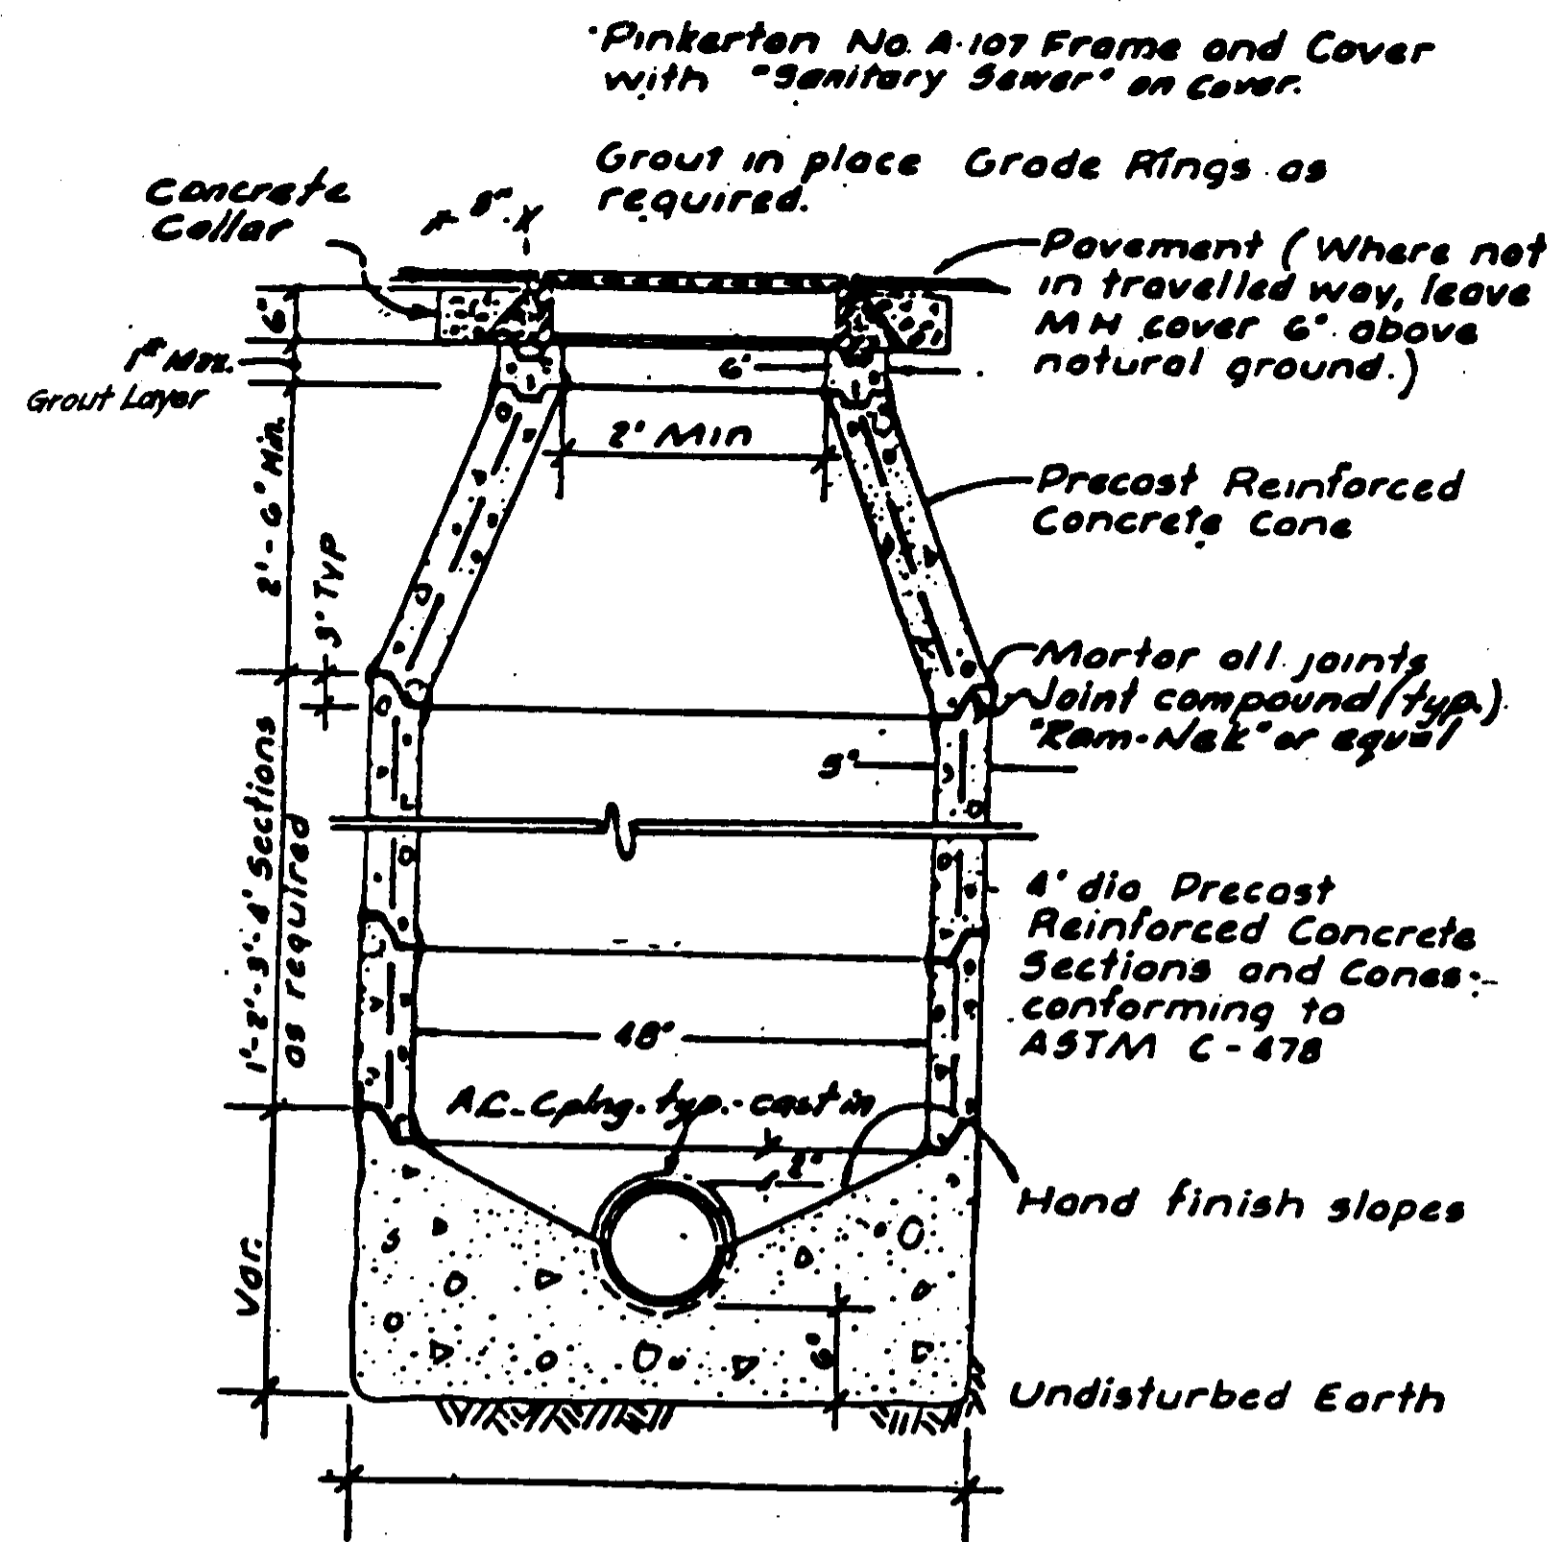 Pinkerton No. A-107 Frame and Cover
with "Sanitary Sewer" on Cover.
Grout in place Grade Rings as
required.
Concrete
Collar
8"
Pavement (Where not
in travelled way, leave
MH cover 6" above
natural ground.)
6"
1" Min.
Grout Layer
6"
2' Min
2'-6" Min.
3" TYP
Precast Reinforced
Concrete Cone
Mortar all joints
Joint compound (typ.)
"Ram-Nek" or equal
5"
1'-2'-3'-4' Sections
as required
4' dia Precast
Reinforced Concrete
Sections and Cones
conforming to
ASTM C-478
48"
A.C. Cplng. typ. cast in
2"
Hand finish slopes
Var.
6"
Undisturbed Earth